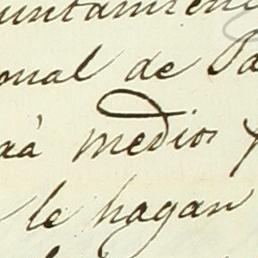 untamien
onal de Pa
aà medios y
le hagan